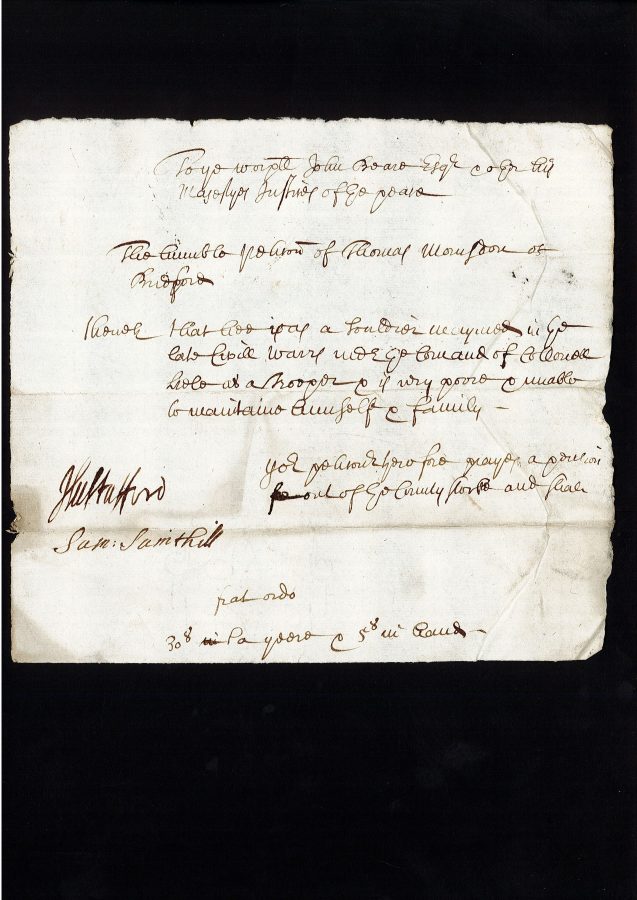 To ye worpll John Beare Esqr & othr his
Majestyes Justices of the peace
The humble peticon of Thomas of
Bridford
Sheweth that hee was a Souldier maymed in the
late Civill Warrs undr the Comand of Collonell
as a Trooper & is very poore & unable
to maintaine himself & family -
yor peticonr therefore prayes a pension
out of the County stocke and shall
Sam:
fiat ordo
30s a yeere & 5s in hand -